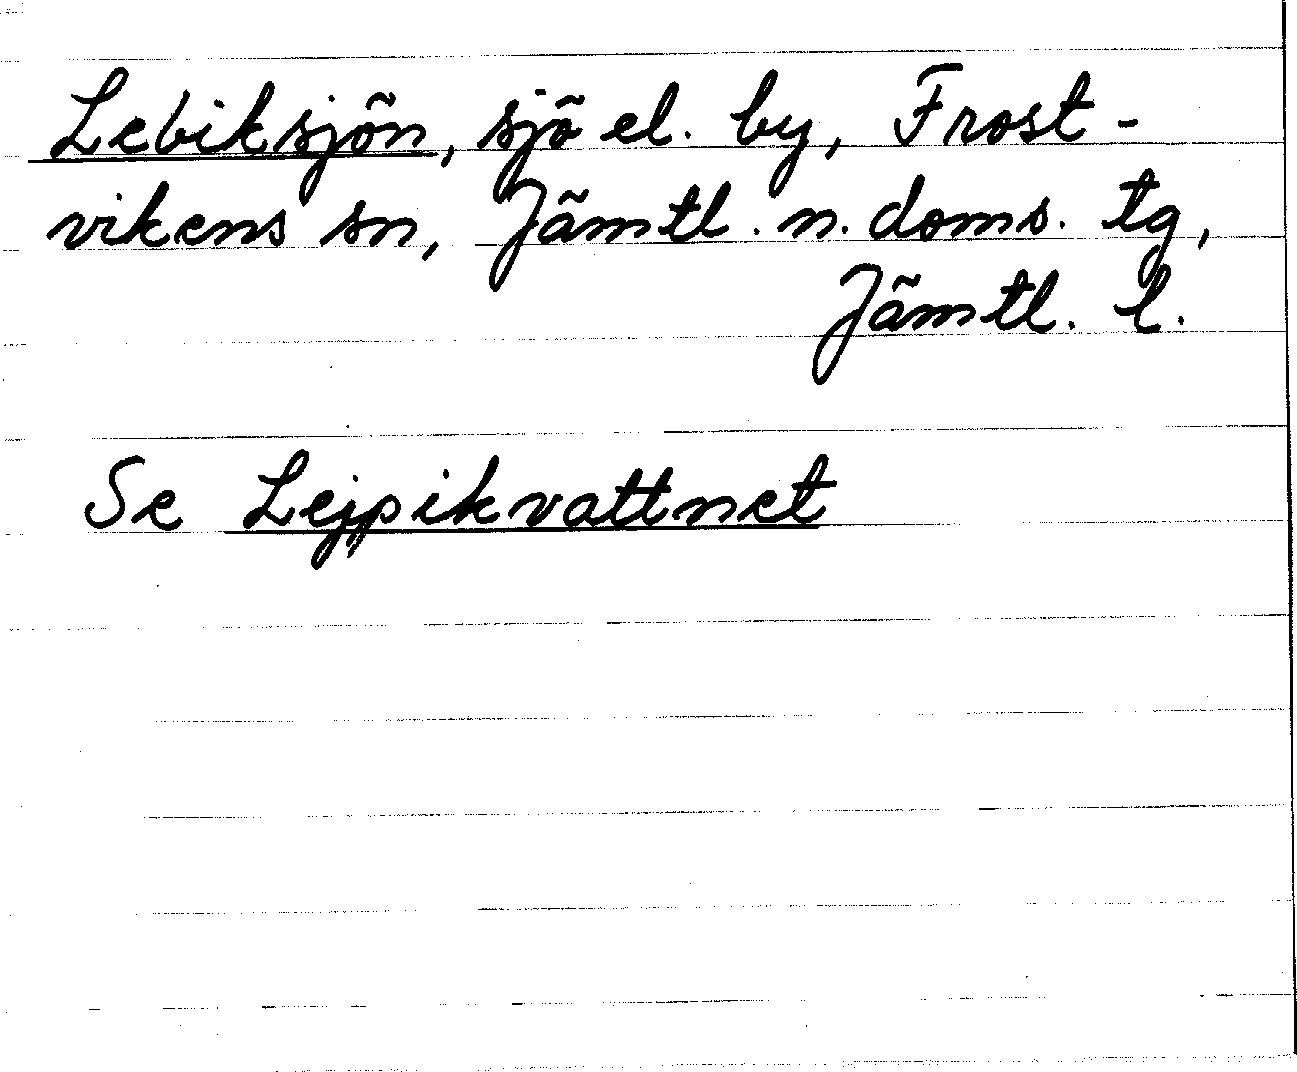 Lebiksjön, sjö el. by, Frost-
vikens sn, Jämtl. n. doms. tg,
Jämtl. l.
Se Lejpikvattnet